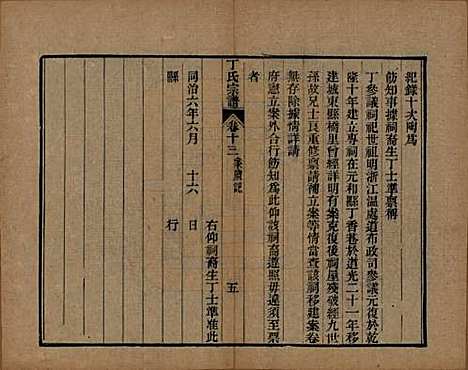 紀錄十次陶爲
飭知事據祠裔生丁士準稟稱
丁參議祠祀世祖明浙江溫處道布政司參議元復於乾
隆十年建立專祠在元和縣丁香巷於道光二十一年移
建城東縣橋里曾經詳明有案克復後祠屋殘破經九世
孫故兄士良重修稟請補立案等情當查該祠移建案卷
無存除據情詳請
府憲立案外合行飭知爲此仰該祠裔遵照毋違須至票
者
右仰祠裔生丁士準准此
同治六年六月 十六 日
縣 行
丁氏宗譜 卷十三 案牘記 五